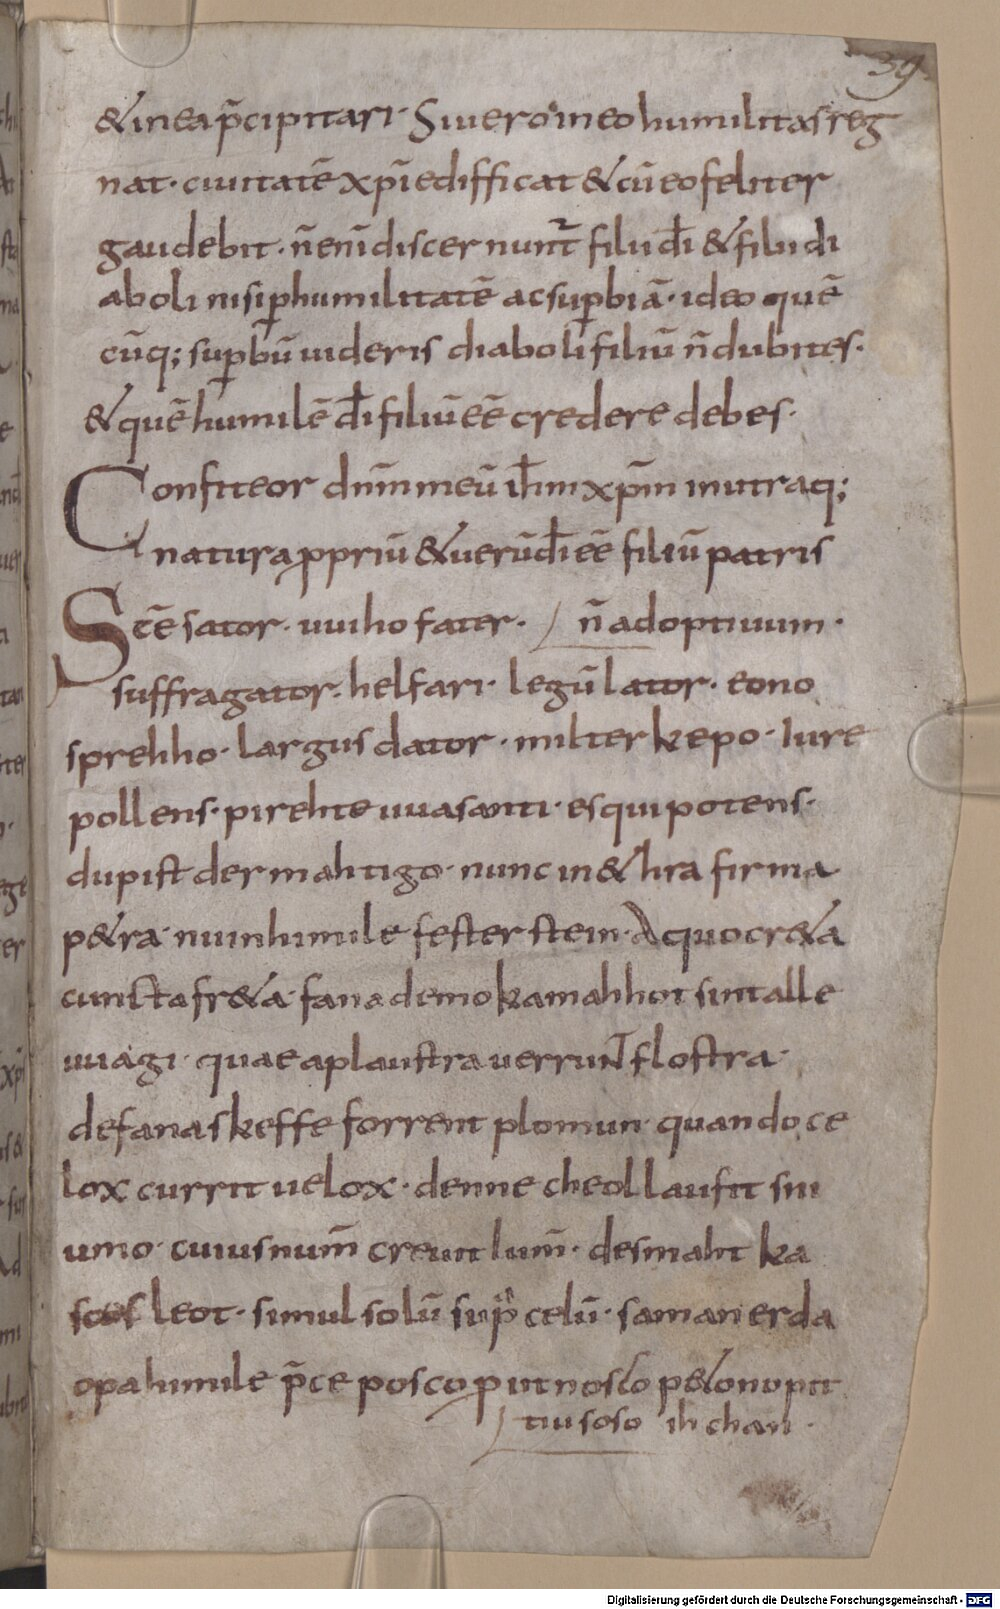 39
& in ea p̄cipitari· Si uero in eo humilitas reg
nat· ciuitatē xp̄i edifficat & cū eo feliter
gaudebit· n̄ enī discernunt̄ filii dī & filii di
aboli nisi ꝑ humilitatē ac suꝑbiā· ideo quē
cūq; suꝑbū uideris diaboli filiū n̄ dubites·
& quē humilē dī filiū eē credere debes·
Confiteor dnm̄ meū ihm̄ xpm̄ in utraq;
natura ꝓpriū & uerū dī eē filiū patris
Sc̄e sator· uuiho fater· n̄ adoptiuum·
suffragator· helfari· legūlator· eono
sprehho· largus dator· milter kepo· Iure
pollens· pirehte uuasanti· es qui potens·
du pist der mahtigo· nunc in &hra firma
p&ra· nu in himile fester stein· A quo cr&a
cuncta fr&a· fana demo kamahhot sint alle
uuagi· quae aplaustra uerrunt flostra·
de fana skeffe forrent plomun· quando ce
lox currit uelox· denne cheol laufit sni
umo· cuius num̄ creuit lum̄· des maht ka
scof leot· simul solū sup̄ celū· saman erda
opa himile p̄ce posco ꝓut nosco p&on u pit
tiu so so ih chan·
Digitalisierung gefördert durch die Deutsche Forschungsgemeinschaft - DFG